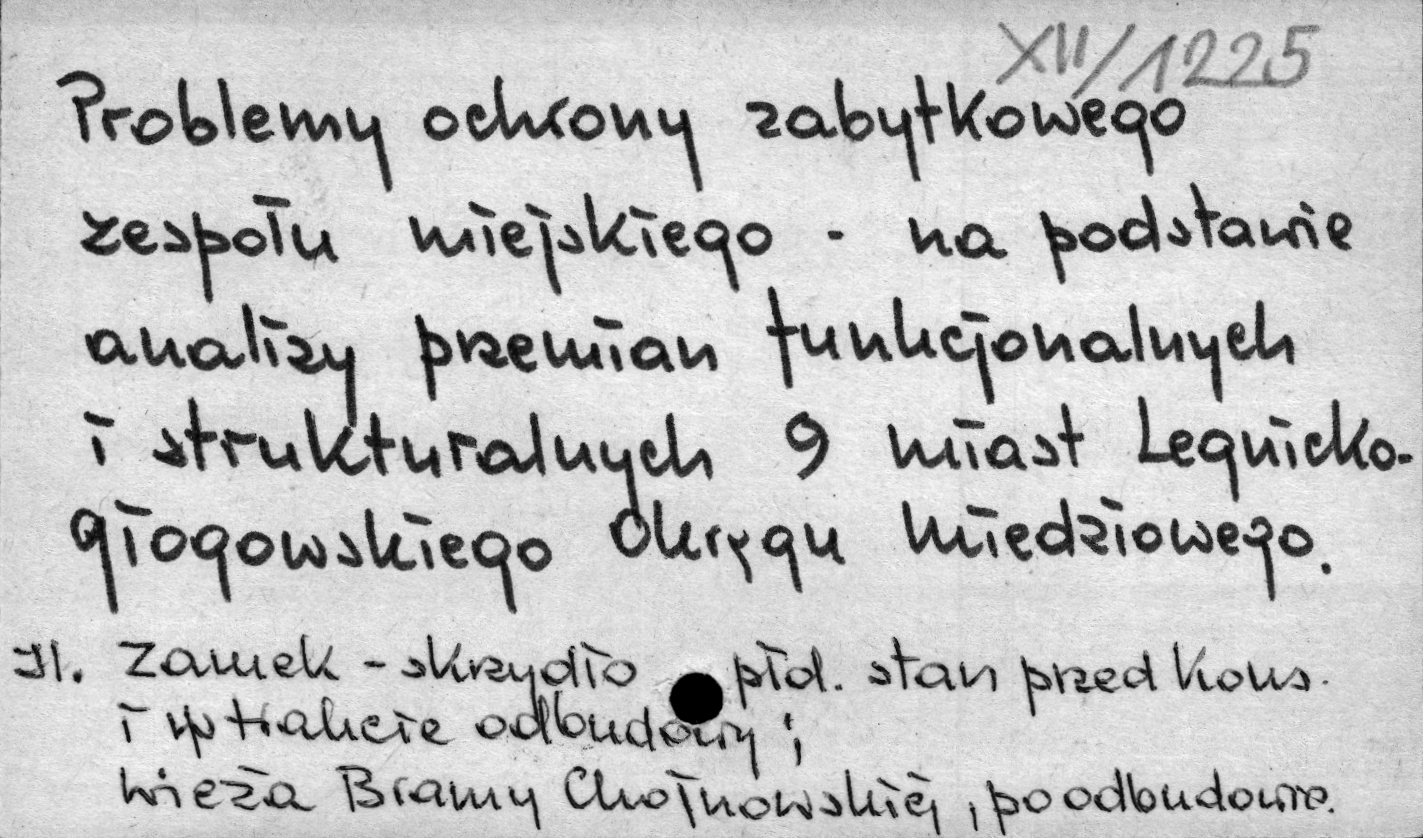 XII/1225
Problemy ochrony zabytkowego
zespołu miejskiego - na podstawie
analizy przemian funkcjonalnych
i strukturalnych 9 miast Legnicko-
głogowskiego Okręgu Miedziowego.
Il. Zamek - skrzydło płd. stan przed kons.
i w trakcie odbudowy;
wieża Bramy Chojnowskiej, po odbudowie.